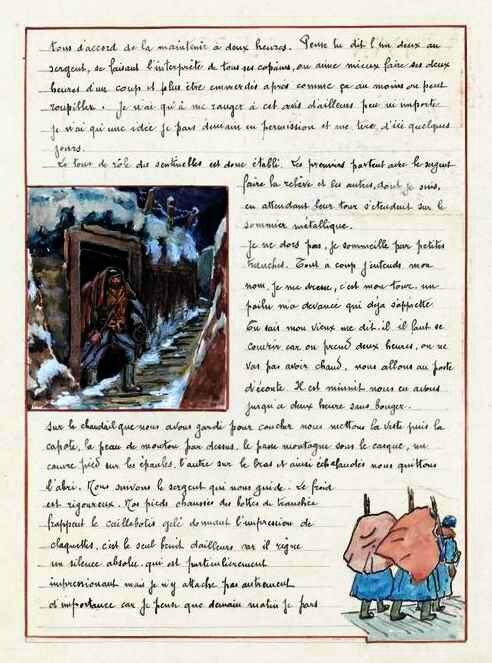 tous d'accord de la maintenir à deux heures. Pense tu dit l'un deux au
sergent, se faisant l'interprète de tous ses copains, on aime mieux faire ses deux
heures d'un coup et plus être emmerdés après comme ça au moins on peut
roupiller. Je n'ai qu'à me ranger à cet avis d'ailleurs peu m'importe
je n'ai qu'une idée je pars demain en permission et me tire d'ici quelques
jours.
Le tour de rôle des sentinelles est donc établi. Les premiers partent avec le sergent
faire la relève et les autres, dont je suis,
en attendant leur tour s'étendent sur le
sommier métallique.
Je ne dors pas, je sommeille par petites
tranches. Tout à coup j'entends mon
nom, je me dresse, c'est mon tour, un
poilu m'a devancé qui déjà s'apprête
Tu sais mon vieux me dit-il il faut se
couvrir car on prend deux heures, on ne
vas pas avoir chaud, nous allons au poste
d'écoute. Il est minuit nous en avons
jusqu'à deux heure sans bouger.
Sur le chandail que nous avons gardé pour coucher nous mettons la veste puis la
capote, la peau de mouton par dessus, le passe montagne sous le casque, un
couvre pied sur les épaules, l'autre sur le bras et ainsi échafaudés nous quittons
l'abri. Nous suivons le sergent qui nous guide. Le froid
est rigoureux. Nos pieds chaussés des bottes de tranchée
frappent le caillebotis gelé donnant l'impression de
claquettes, c'est le seul bruit d'ailleurs, car il règne
un silence absolu, qui est particulièrement
impressionant mais je n'y attache pas autrement
d'importance car je pense que demain matin je pars